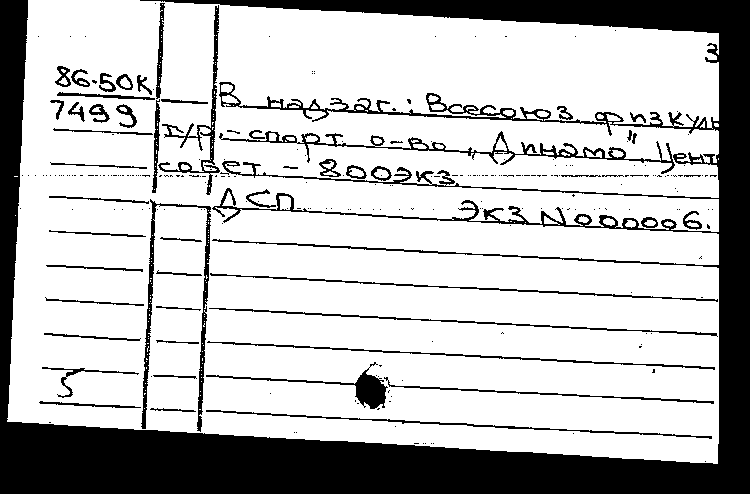 3
86-50К
7499
В надзаг.: Всесоюз. физкуль
т/р.-спорт. о-во „Динамо". Цент
совет. - 800экз.
ДСП. Экз N000006.
5